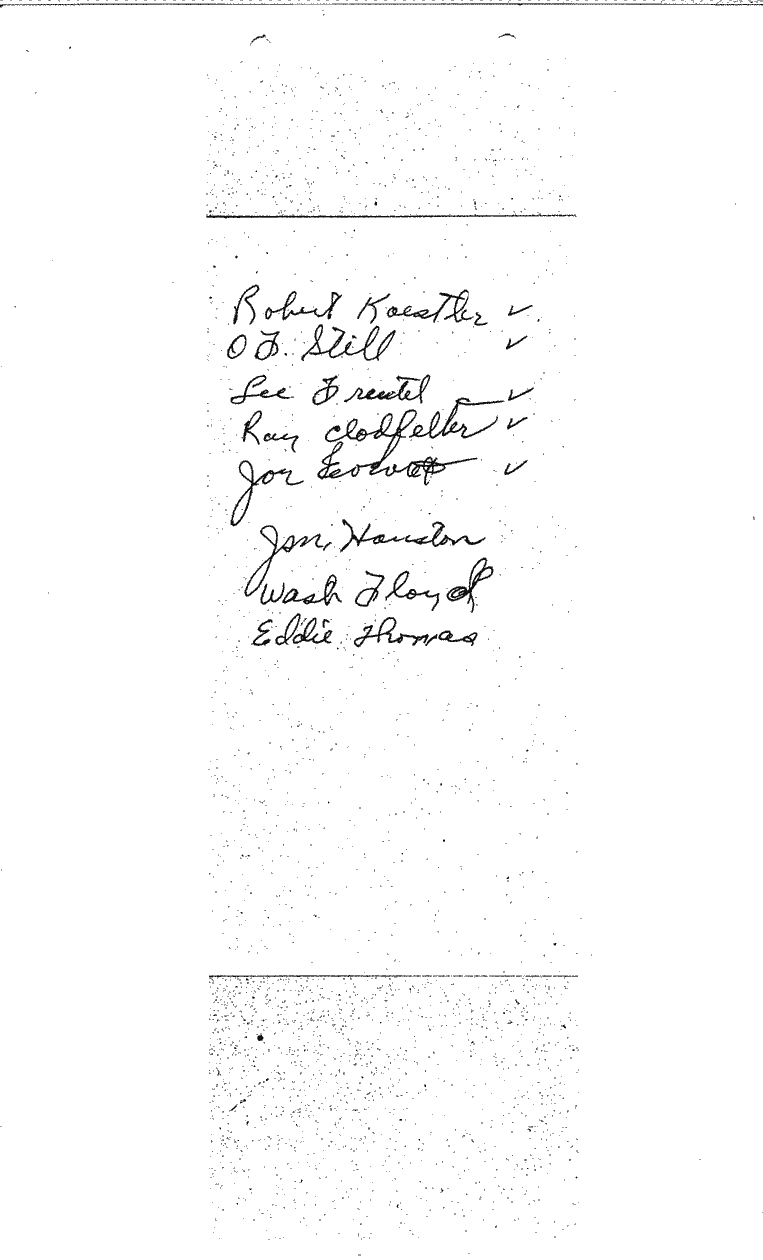 Robert Koestler ✓
O F. Still ✓
Lee Frentel ✓
Ray Clodfelter ✓
Joe ✓
Jim Houston
Wash Floyd
Eddie Thomas